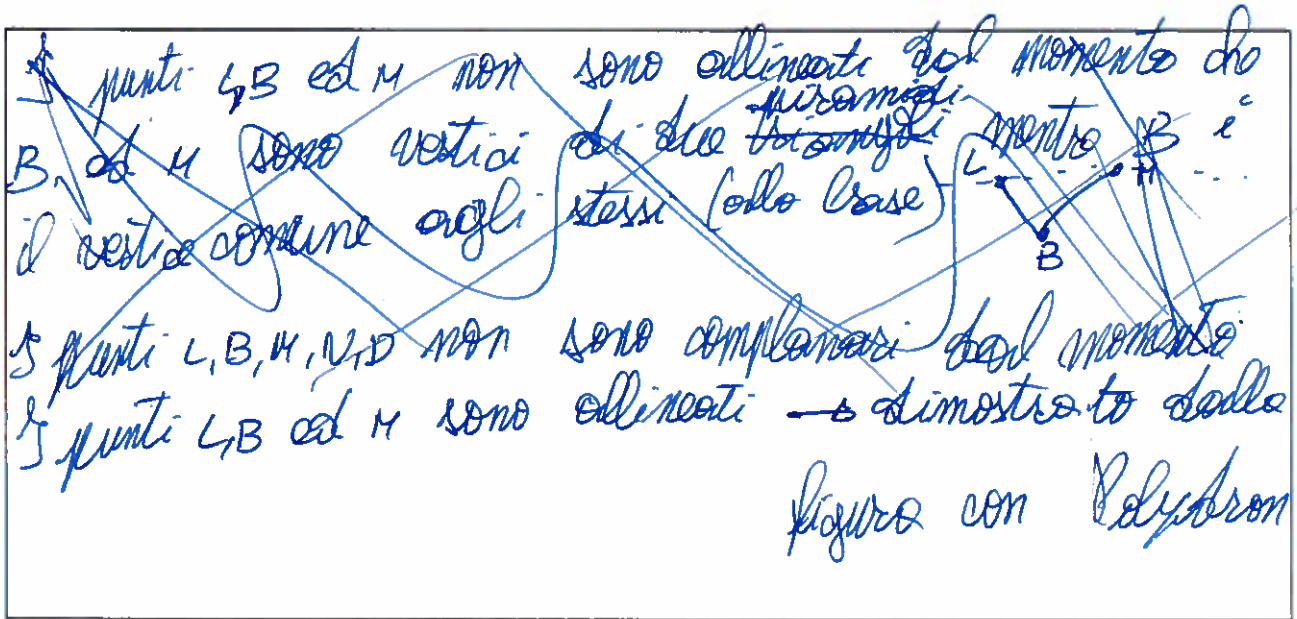 I punti L,B ed M non sono allineati dal momento che
B, ed M sono vertici di due triangoli piramidi mentre B è
il vertice comune agli stessi (alla base)
L M
B
I punti L, B, M, N, D non sono complanari dal momento
I punti L,B ed M sono allineati → dimostrato dalla
figura con Polydron